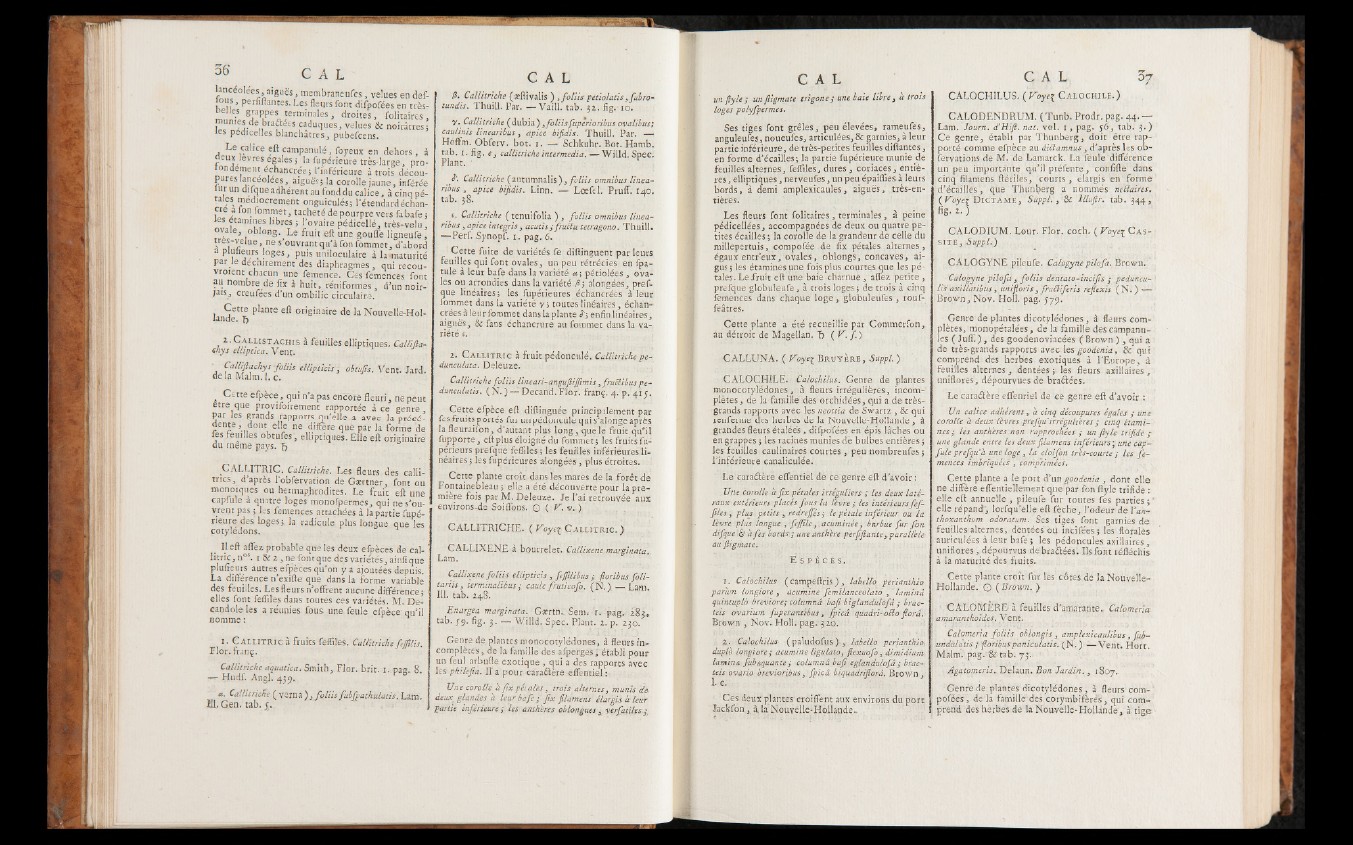 36 C A L
lancéolées, aiguës, membraneuses, velues en des-
sous, persistantes. Les fleurs sont disposées en très-
belles grappes terminales, droites, solitaires,
munies de bractées caduques, velues & noirâtres;
les pédicelles blanchâtres, pubescens.
Le calice est campanulé, soyeux en dehors, à
deux lèvres égales; la supérieure très-large, pro-
fondément échancrée; l'inférieure à trois décou-
pures lancéolées, aiguës; la corolle jaune, insérée
sur un disque adhérent au fond du calice, à cinq pé-
tales médiocrement onguiculés; l'étendard échan-
cré à son sommet, tacheté de pourpre vers sa base;
les étamines libres; l'ovaire pédicellé, très-velu,
ovale, oblong. Le fruit est une gousse ligneuse,
très-velue, ne s'ouvrant qu'à son sommet, d'abord
à plusieurs loges, puis uniloculaire à la maturité
par le déchirement des diaphragmes, qui recou-
vroient chacun une semence. Ces semences sont
au nombre de six à huit, réniformes, d'un noir-
jais, creusées d'un ombilic circulaire.
Cette plante est originaire de la Nouvelle-Hol-
lande. ♄
2. CALLISTACHIS à feuilles elliptiques. Callista-
chys elliptica. Vent.
Callistachys foliis ellipticis, obtusis. Vent. Jard.
de la Malm. l. c.
Cette espèce, qui n'a pas encore fleuri, ne peut
être que provisoirement rapportée à ce genre,
par les grands rapports qu'elle a avec la précé-
dente, dont elle ne diffère que par la forme de
ses feuilles obtuses, elliptiques. Elle est originaire
du même pays. ♄
CALLITRIC. Callitriche. Les fleurs des calli-
trics, d'après l'observation de Gærtner, sont ou
monoïques ou hermaphrodites. Le fruit est une
capsule à quatre loges monospermes, qui ne s'ou-
vrent pas; les semences attachées à la partie supé-
rieure des loges; la radicule plus longue que les
cotylédons.
Il est assez probable que les deux espèces de cal-
litric, nos. 1 & 2, ne sont que des variétés, ainsi que
plusieurs autres espèces qu'on y a ajoutées depuis.
La différence n'existe que dans la forme variable
des feuilles. Les fleurs n'offrent aucune différence;
elles sont sessiles dans toutes ces variétés. M. De-
candole les a réunies sous une seule espèce qu'il
nomme:
1. CALLITRIC à fruits sessiles. Callitriche sessilis.
Flor. franç.
Callitriche aquatica. Smith, Flor. brit. 1. pag. 8.
— Huds. Angl. 439.
α. Callitriche (verna), foliis subspathulatis. Lam.
Ill. Gen. tab. 5.
C A L
β. Callitriche (æstivalis), foliis petiolatis, subro-
tundis. Thuill. Par. — Vaill. tab. 32. fig. 10.
γ. Callitriche (dubia), foliis superioribus ovalibus;
caulinis linearibus, apice bifidis. Thuill. Par. —
Hoffm. Observ. bot. 1. — Schkuhr. Bot. Hamb.
tab. 1. fig. e, callitriche intermedia. — Willd. Spec.
Plant.
δ. Callitriche (autumnalis), foliis omnibus linea-
ribus, apice bifidis. Linn. — Lœsel. Pruss. 140.
tab. 38.
ε. Callitriche (tenuifolia), foliis omnibus linea-
ribus, apice integris, acutis; fructu tetragono. Thuill.
—Pers. Synops. 1. pag. 6.
Cette suite de variétés se distinguent par leurs
feuilles qui sont ovales, un peu rétrécies en spa-
tule à leur base dans la variété α; pétiolées, ova-
les ou arrondies dans la variété β; alongées, pres-
que linéaires; les supérieures échancrées à leur
sommet dans la variété γ; toutes linéaires, échan-
crées à leur sommet dans la plante δ; enfin linéaires,
aiguës, & sans échancrure au sommet dans la va-
riété ε.
2. CALLITRIC à fruit pédonculé. Callitriche pe-
dunculata. Deleuze.
Callitriche foliis lineari-angustissimis, fructibus pe-
dunculatis. (N.) — Decand. Flor. franç. 4. p. 415.
Cette espèce est distinguée principalement par
ses fruits portés sur un pédoncule qui s'alonge après
la fleuraison, d'autant plus long, que le fruit qu'il
supporte, est plus éloigné du sommet; les fruits su-
périeurs presque sessiles; les feuilles inférieures li-
néaires; les supérieures alongées, plus étroites.
Cette plante croît dans les mares de la forêt de
Fontainebleau; elle a été découverte pour la pre-
mière fois par M. Deleuze. Je l'ai retrouvée aux
environs de Soissons. ☉ (V. v.)
CALLITRICHE. (Voyez CALLITRIC.)
CALLIXENE à bourrelet. Callixene marginata.
Lam.
Callixene foliis ellipticis, sessilibus; floribus soli-
tariis, terminalibus; caule fruticoso. (N.) — Lam.
Ill. tab. 248.
Enargea marginata. Gærtn. Sem. 1. pag. 283,
tab. 59. fig. 3. — Willd. Spec. Plant. 2. p. 230.
Genre de plantes monocotylédones, à fleurs in-
complètes, de la famille des asperges, établi pour
un seul arbuste exotique, qui a des rapports avec
les philesia. Il a pour caractère essentiel:
Une corolle à six pétales, trois alternes, munis de
deux glandes à leur base; six filamens élargis à leur
partie inférieure; les anthères oblongues, versatiles;
C A L
un style; un stigmate trigone; une baie libre, à trois
loges polyspermes.
Ses tiges sont grêles, peu élevées, rameuses,
anguleuses, noueuses, articulées, & garnies, à leur
partie inférieure, de très-petites feuilles distantes,
en forme d'écailles; la partie supérieure munie de
feuilles alternes, sessiles, dures, coriaces, entiè-
res, elliptiques, nerveuses, un peu épaissies à leurs
bords, à demi amplexicaules, aiguës, très-en-
tières.
Les fleurs sont solitaires, terminales, à peine
pédicellées, accompagnées de deux ou quatre pe-
tites écailles; la corolle de la grandeur de celle du
millepertuis, composée de six pétales alternes,
égaux entr'eux, ovales, oblongs, concaves, ai-
gus; les étamines une fois plus courtes que les pé-
tales. Le fruit est une baie charnue, assez petite,
presque globuleuse, à trois loges; de trois à cinq
semences dans chaque loge, globuleuses, rous-
seâtres.
Cette plante a été recueillie par Commerson,
au détroit de Magellan. ♄ (V. s.)
CALLUNA. (Voyez BRUYÈRE, Suppl.)
CALOCHILE. Calochilus. Genre de plantes
monocotylédones, à fleurs irrégulières, incom-
plètes, de la famille des orchidées, qui a de très-
grands rapports avec les neottia de Swartz, & qui
renferme des herbes de la Nouvelle-Hollande, à
grandes fleurs étalées, disposées en épis lâches ou
en grappes; les racines munies de bulbes entières;
les feuilles caulinaires courtes, peu nombreuses;
l'inférieure canaliculée.
Le caractère essentiel de ce genre est d'avoir:
Une corolle à six pétales irréguliers; les deux laté-
raux extérieurs placés sous la lèvre; les intérieurs ses-
siles, plus petits, redressés; le pétale inférieur ou la
lèvre plus longue, sessile, acuminée, barbue sur son
disque & à ses bords; une anthère persistante, parallèle
au stigmate.
ESPÈCES.
1. Calochilus (campestris), labello perianthio
parùm longiore, acumine semilanceolato, laminâ
quintuplò breviore; columnâ basi biglandulosâ; brac-
teis ovarium superantibus, spicâ quadri-octo florâ.
Brown, Nov. Holl. pag. 320.
2. Calochilus (paludosus), labello perianthio
duplò longiore; acumine ligulato, flexuoso, dimidium
laminæ subæquante; columnâ basi eglandulosâ; brac-
teis ovario brevioribus, spicâ biquadriflorâ. Brown,
l. c.
Ces deux plantes croissent aux environs du port
Jackson, à la Nouvelle-Hollande.
C A L 37
CALOCHILUS. (Voyez CALOCHILE.)
CALODENDRUM. (Tunb. Prodr. pag. 44. —
Lam. Journ. d'Hist. nat. vol. 1, pag. 56, tab. 3.)
Ce genre, établi par Thunberg, doit être rap-
porté comme espèce au dictamnus, d'après les ob-
servations de M. de Lamarck. La seule différence
un peu importante qu'il présente, consiste dans
cinq filamens stériles, courts, élargis en forme
d'écailles, que Thunberg a nommés nectaires.
(Voyez DICTAME, Suppl., & Illustr. tab. 344,
fig. 2.)
CALODIUM. Lour. Flor. coch. (Voyez CAS-
SITE, Suppl.)
CALOGYNE pileuse. Calogyne pilosa. Brown.
Calogyne pilosa, foliis dentato-incisis; peduncu-
lis axillaribus, unifloris, fructiferis reflexis (N.) —
Brown, Nov. Holl. pag. 579.
Genre de plantes dicotylédones, à fleurs com-
plètes, monopétalées, de la famille des campanu-
les (Juss.), des goodenoviacées (Brown), qui a
de très-grands rapports avec les goodenia, & qui
comprend des herbes exotiques à l'Europe, à
feuilles alternes, dentées; les fleurs axillaires,
uniflores, dépourvues de bractées.
Le caractère essentiel de ce genre est d'avoir:
Un calice adhérent, à cinq découpures égales; une
corolle à deux lèvres presqu'irrégulières; cinq étami-
nes; les anthères non rapprochées; un style trifide;
une glande entre les deux filamens inférieurs; une cap-
sule presqu'à une loge, la cloison très-courte; les se-
mences imbriquées, comprimées.
Cette plante a le port d'un goodenia, dont elle
ne diffère essentiellement que par son style trifide:
elle est annuelle, pileuse sur toutes ses parties;
elle répand, lorsqu'elle est sèche, l'odeur de l'an-
thoxanthum odoratum. Ses tiges sont garnies de
feuilles alternes, dentées ou incisées; les florales
auriculées à leur base; les pédoncules axillaires,
uniflores, dépourvus de bractées. Ils sont réfléchis
à la maturité des fruits.
Cette plante croît sur les côtes de la Nouvelle-
Hollande. ☉ (Brown.)
CALOMÈRE à feuilles d'amarante. Calomeria
amarantholdes. Vent.
Calomeria foliis oblongis, amplexicaulibus, sub-
undulatis; floribus paniculatis. (N.) — Vent. Hort.
Malm. pag. & tab. 73.
Agatomeris. Delaun. Bon Jardin., 1807.
Genre de plantes dicotylédones, à fleurs com-
posées, de la famille des corymbifères, qui com-
prend des herbes de la Nouvelle-Hollande, à tige